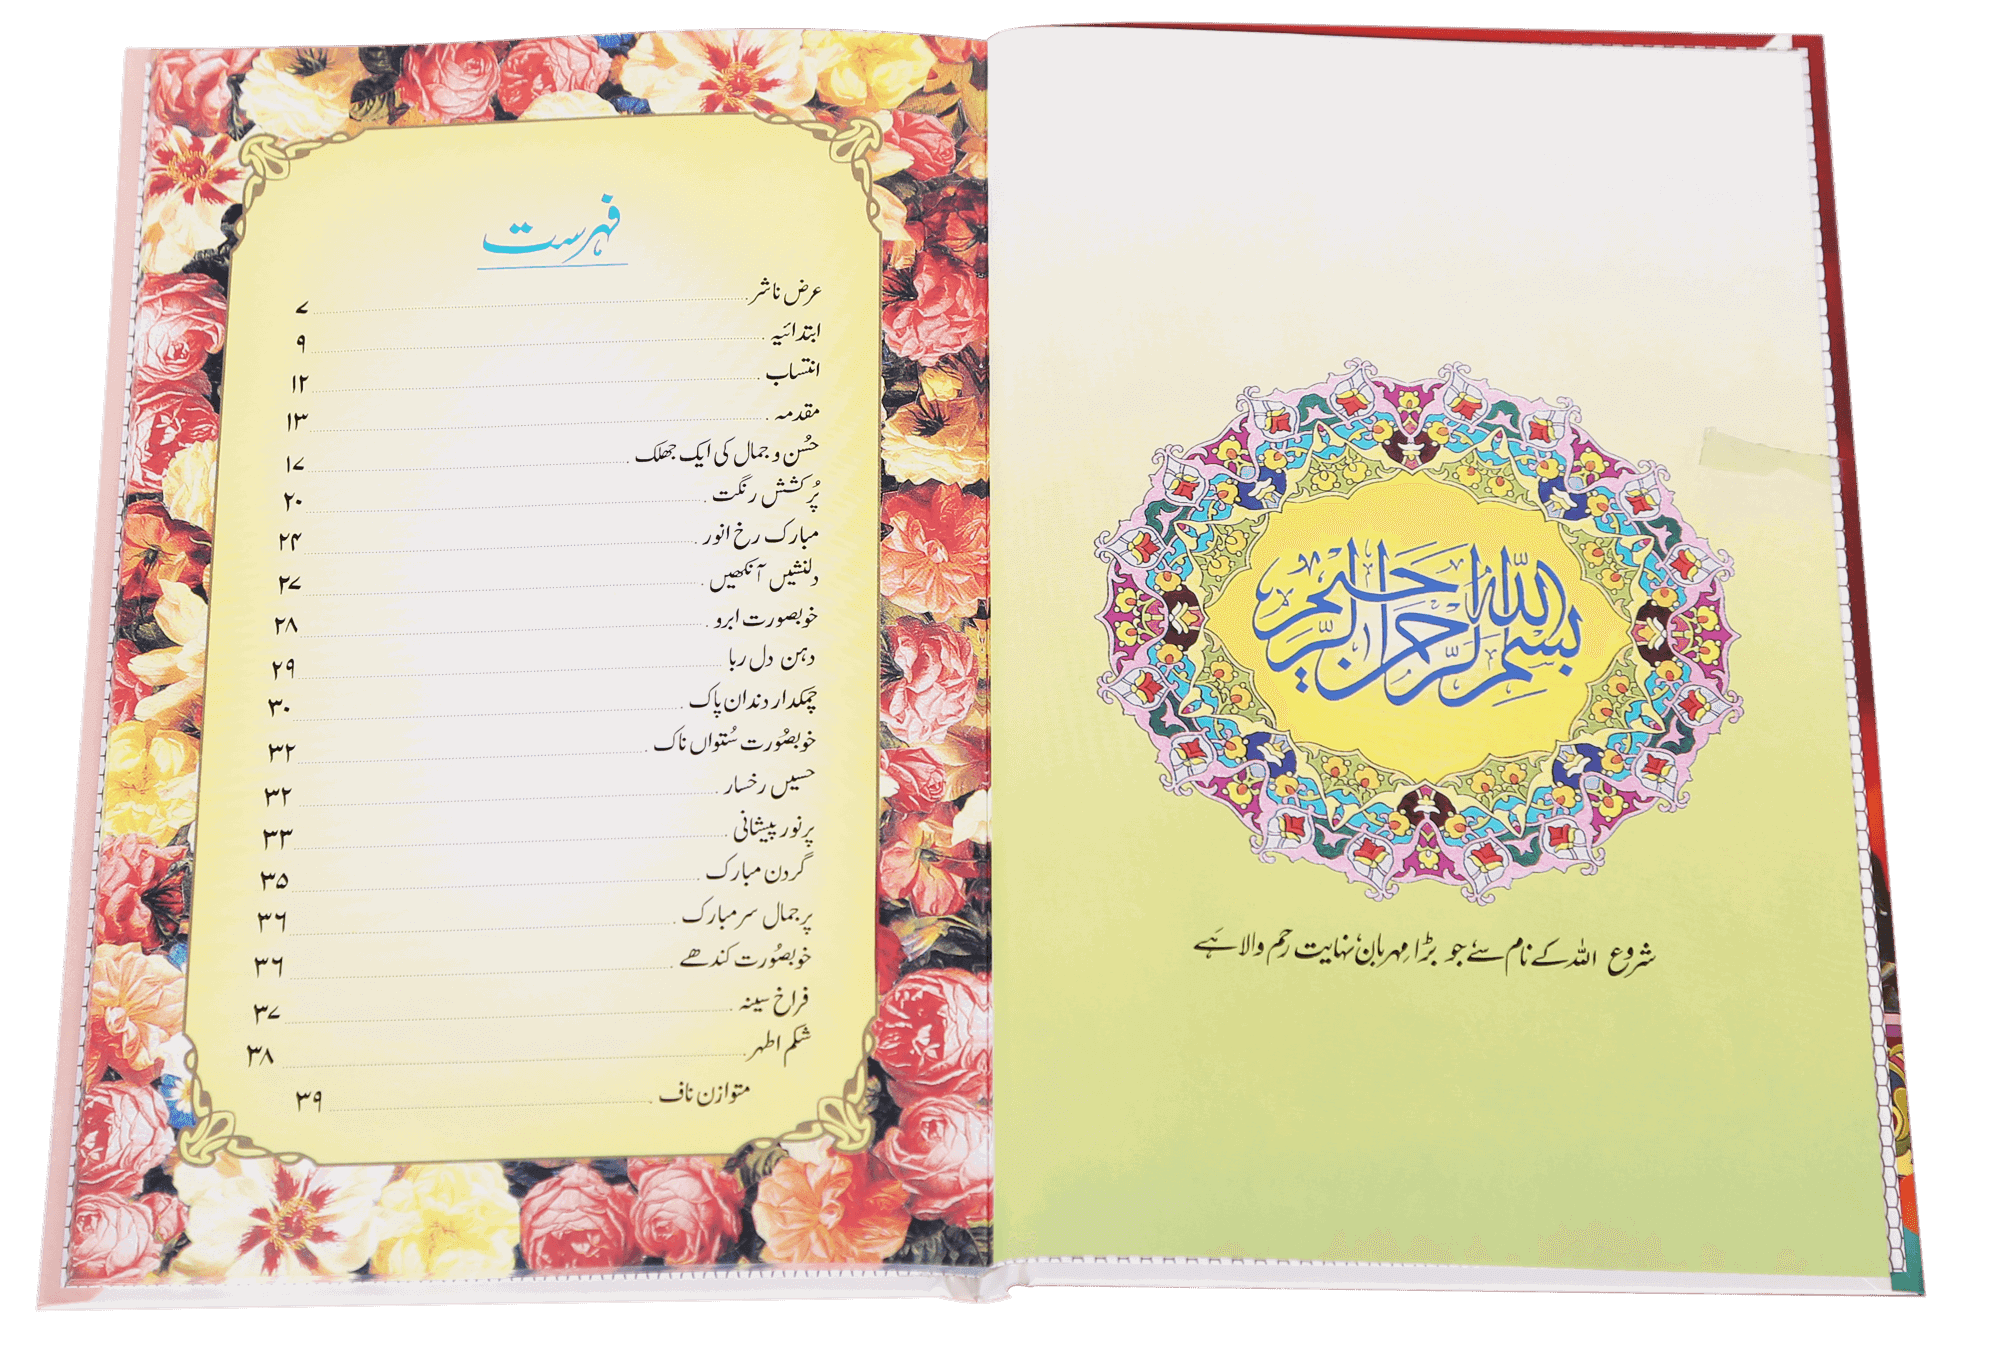 بسم اللہ الرحمن الرحیم
شروع اللہ کے نام سے جو بڑا مہربان نہایت رحم والا ہے
فہرست
عرض ناشر ۷
ابتدائیہ ۹
انتساب ۱۲
مقدمہ ۱۳
حُسن و جمال کی ایک جھلک ۱۷
پُرکشش رنگت ۲۰
مبارک رخ انور ۲۴
دلنشیں آنکھیں ۲۷
خوبصورت ابرو ۲۸
دہن دل ربا ۲۹
چمکدار دندان پاک ۳۰
خوبصُورت سُتواں ناک ۳۲
حسیں رخسار ۳۲
پرنور پیشانی ۳۳
گردن مبارک ۳۵
پرجمال سر مبارک ۳۶
خوبصُورت کندھے ۳۶
فراخ سینہ ۳۷
شکم اطہر ۳۸
متوازن ناف ۳۹